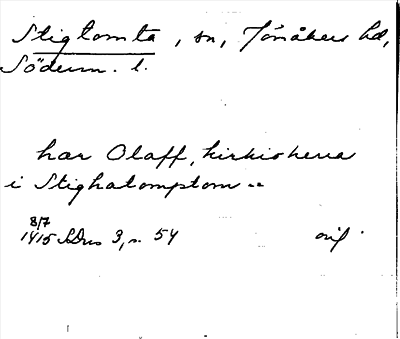 Stigtomta, sn, Jönåkers hd,
Söderm. l.
har Olaff, kirkioherra
i Stighatomptom --
8/7
1415 SDns 3, s. 54 orig.